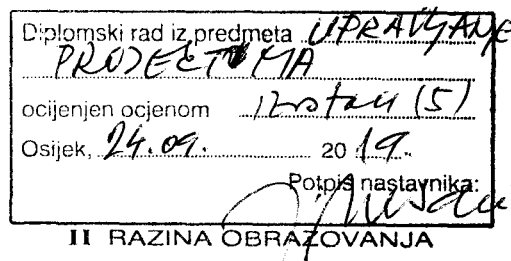 Diplomski rad iz predmeta UPRAVLJANJE
PROJEKTIMA
ocijenjen ocjenom izvrstan (5)
Osijek, 24.09. 2019.
Potpis nastavnika:
II RAZINA OBRAZOVANJA